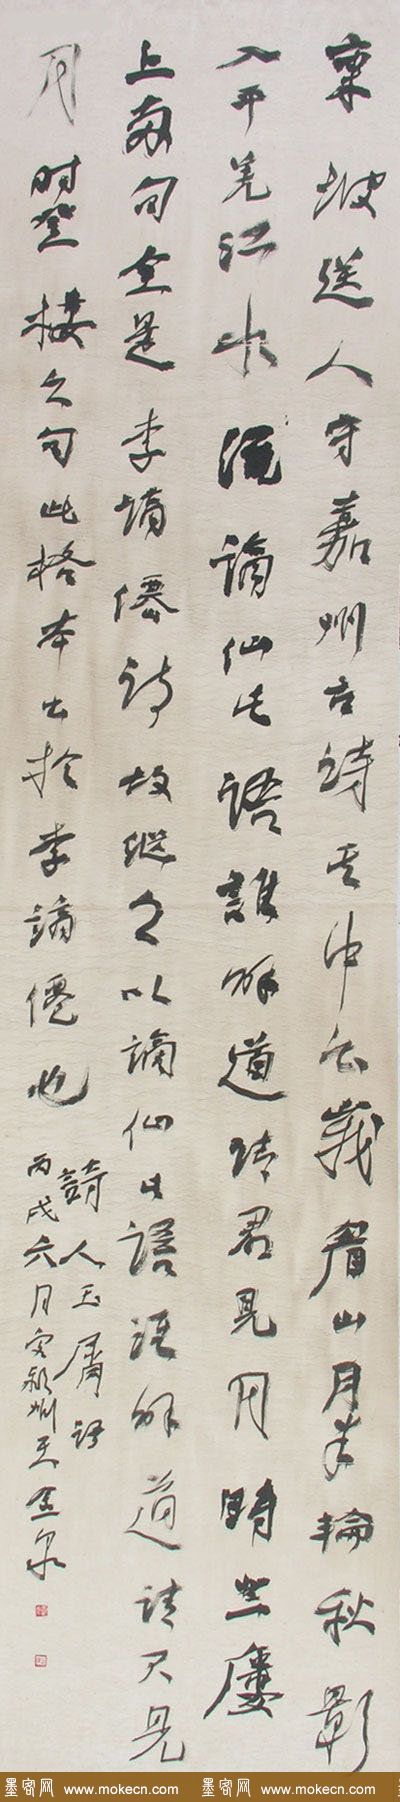 東坡送人守嘉州古詩其中云峩眉山月半輪秋影
入平羌江水流謫仙此語誰解道請君見月時登樓
上兩句全是李謫僊詩故繼之以謫仙此語誰解道請君見
月時登樓之句此格本出於李謫僊也
詩人玉屑語
丙戌六月
墨客网 www.mokecn.com 墨客网 www.mokecn.com